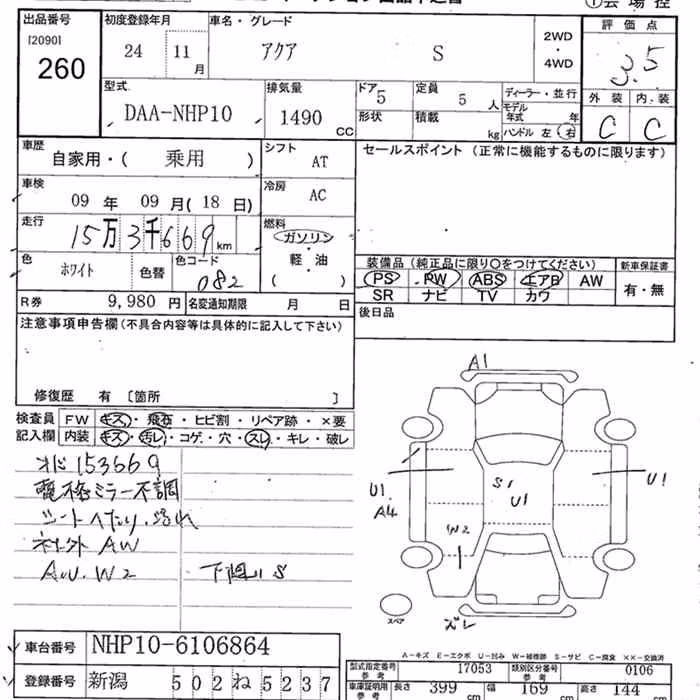 出品番号 初度登録年月 車名・グレード 評価点
[2090] 260 24 11月 アクア S 2WD・4WD 3.5
型式 排気量 ドア 定員 ディーラー・並行 外装 内装
DAA-NHP10 1490 CC 5 5人 モデル年式 年 C C
形状 積載 kg ハンドル 左 右
車歴 シフト セールスポイント(正常に機能するものに限ります)
自家用・( 乗用 ) AT
車検 冷房
09 年 09 月( 18 日) AC
走行 燃料
15万3千669km ガソリン・軽油
色 色コード ( )
ホワイト 色替 082
装備品(純正品に限り○をつけてください) 新車保証書
PS PW ABS エアB AW 有・無
SR ナビ TV カワ
R券 9,980 円 名変通知期限 月 日 後日品
注意事項申告欄(不具合内容等は具体的に記入して下さい)
修復歴 有 〔箇所 〕
検査員 FW キズ・飛石・ヒビ割・リペア跡・×要
記入欄 内装 キズ・汚レ・コゲ・穴・スレ・キレ・破レ
153669
電格ミラー不調
シートへたり・汚れ
社外AW
W2 S
A1
U1
A4
S1
U1
U1
W2
ズレ
スペア
A-キズ E-エクボ U-凹み W-補修跡 S-サビ C-腐食 ××-交換済
車台番号 NHP10-6106864
登録番号 新潟 502ね5237
型式指定番号 参考 17053 類別区分番号 参考 0106
車庫証明用 参考 長さ 399 幅 169 高さ 144